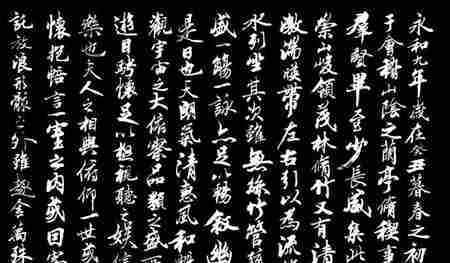 永和九年歲在癸丑暮春之初
于會稽山陰之蘭亭脩稧事
群賢畢至少長咸集此
崇山峻領茂林脩竹又有清
激湍暎帶左右引以為流
水列坐其次雖無絲竹管弦
盛一觴一詠亦足以暢敘幽
是日也天朗氣清惠風和暢
觀宇宙之大俯察品類之盛所
遊目騁懷足以極視聽之娛信
樂也夫人之相與俯仰一世或
懷抱悟言一室之內或因寄
託放浪形骸之外雖趣舍萬殊